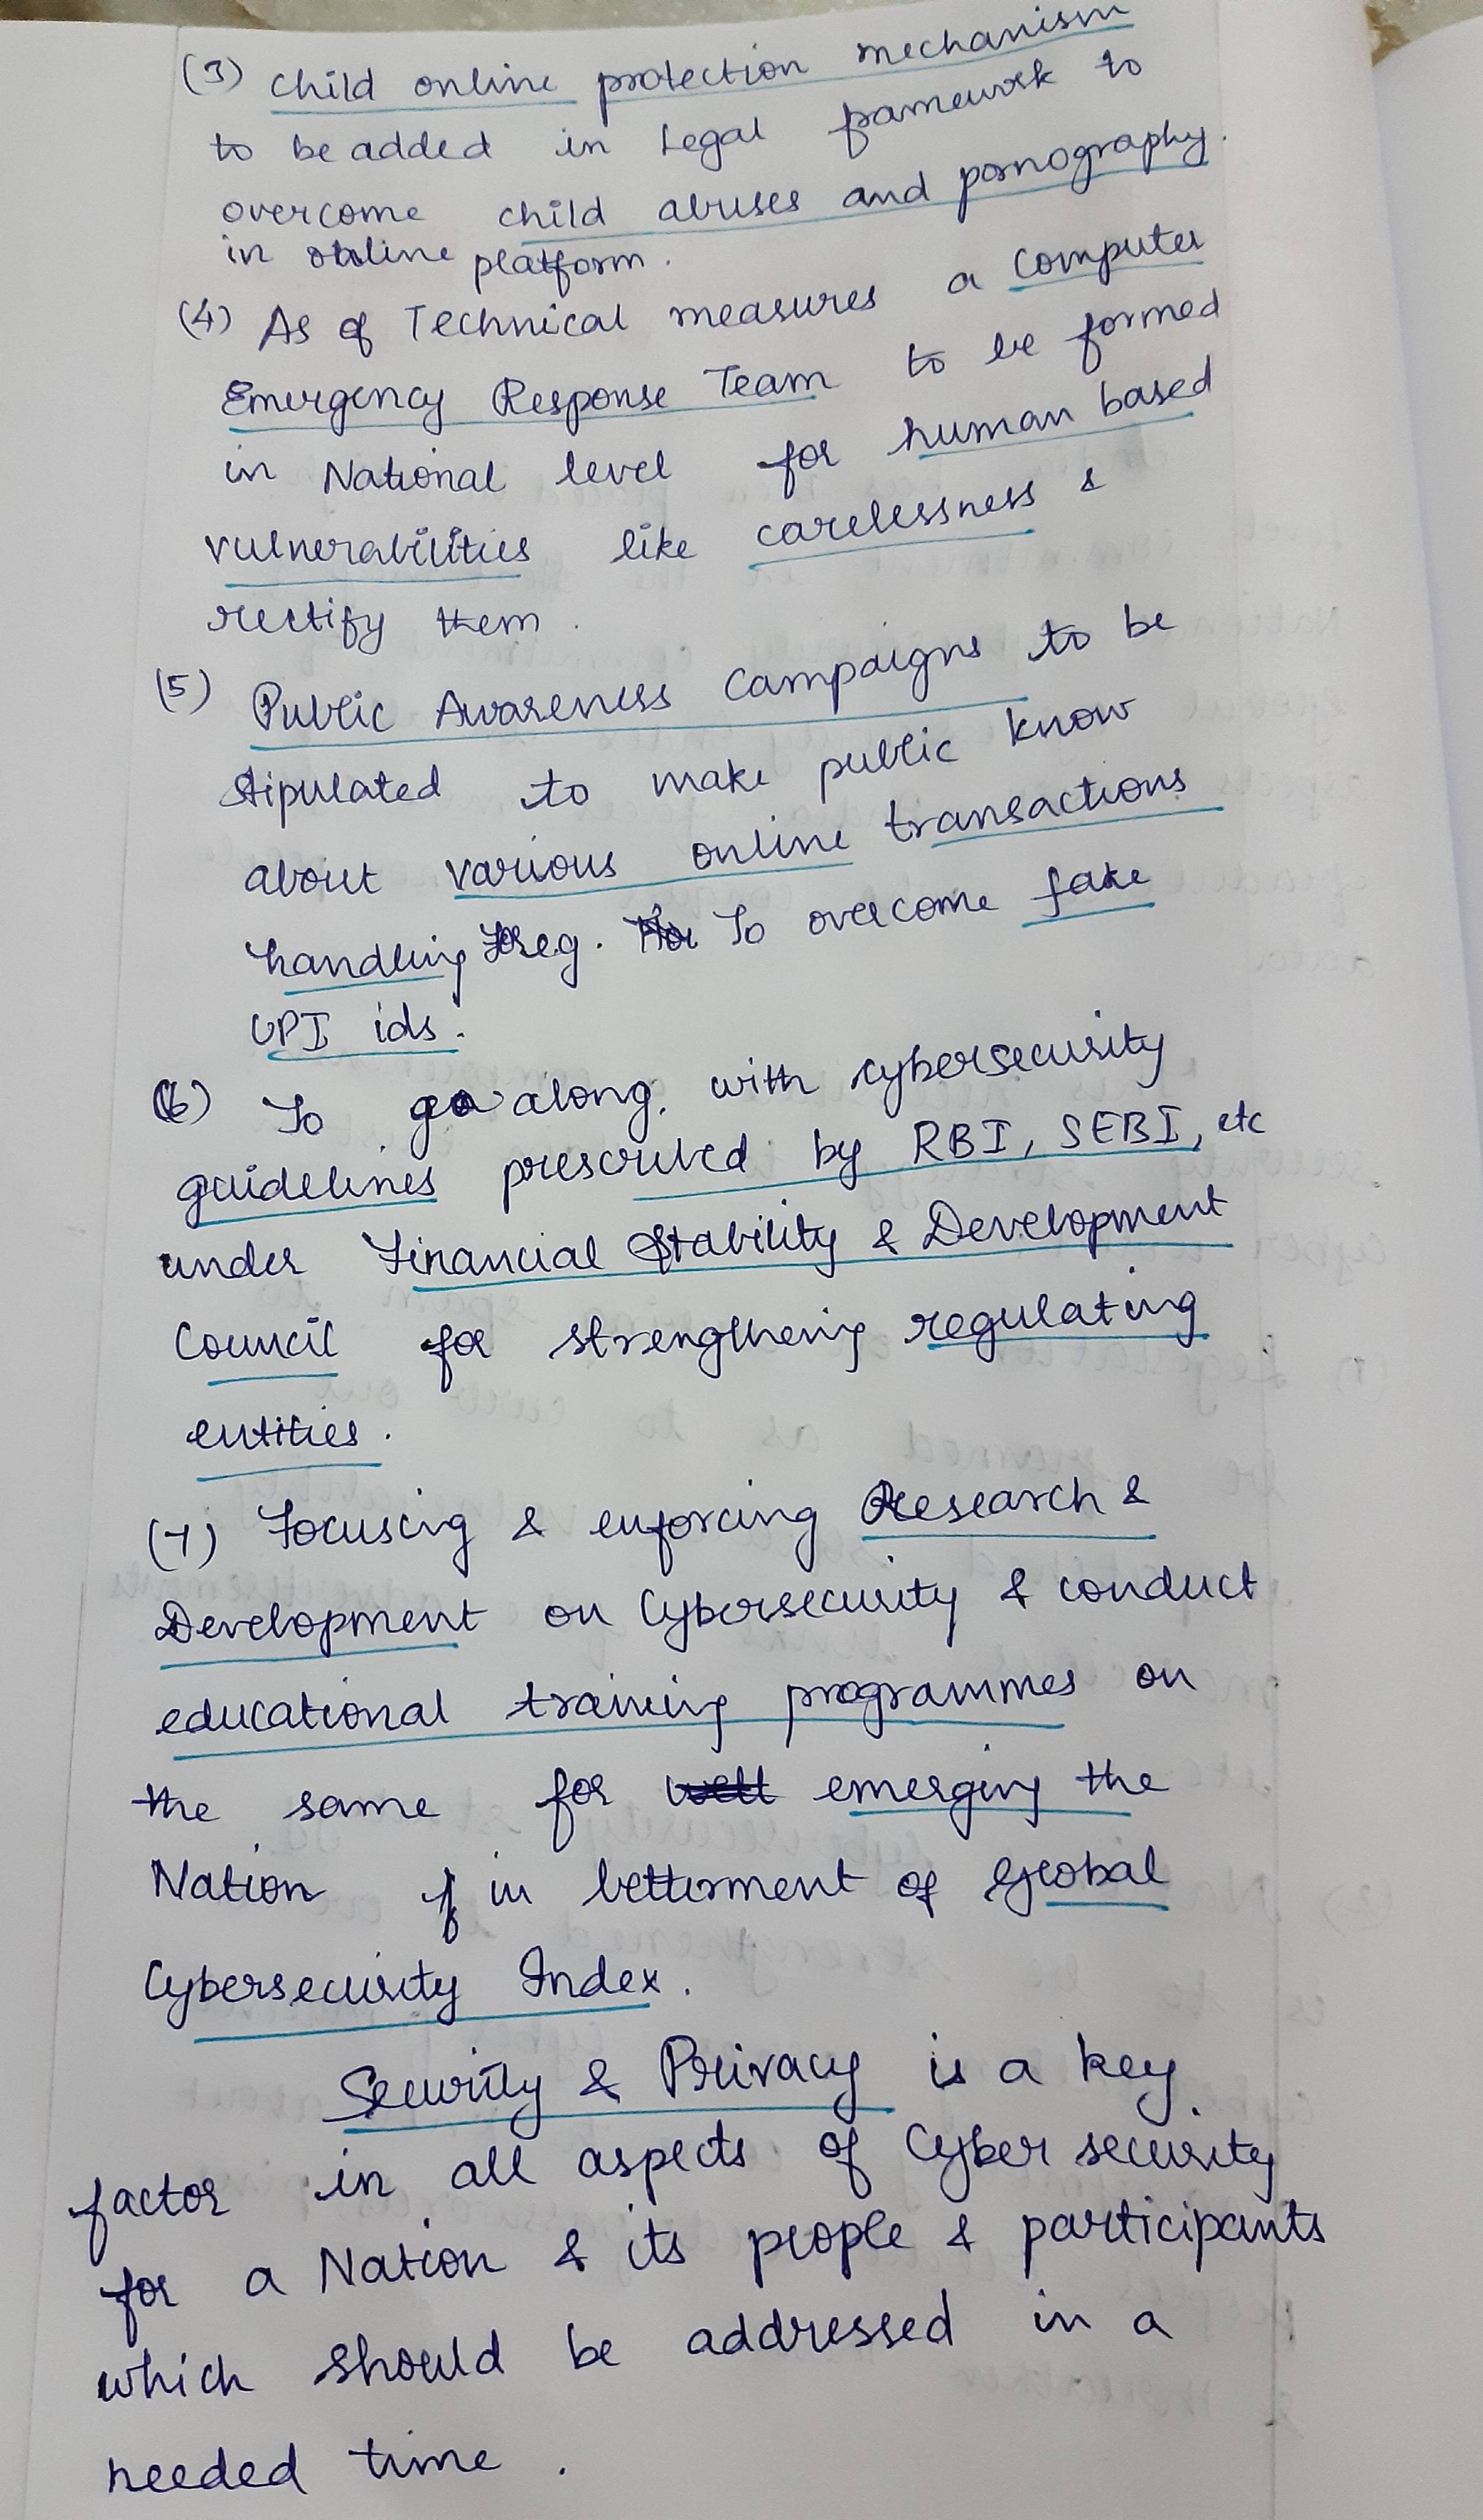 (3) Child online protection mechanism
to be added in Legal framework to
overcome child abuses and pornography.
in online platform.
(4) As of Technical measures a Computer
Emergency Response Team to be formed
in National level for human based
vulnerabilities like carelessness &
rectify them.
(5) Public Awareness Campaigns to be
stipulated to make public know
about various online transactions
handling eg. To overcome fake
UPI ids.
(6) To go along with cybersecurity
guidelines prescribed by RBI, SEBI, etc
under Financial Stability & Development
Council for strengthening regulating
entities.
(7) Focusing & enforcing Research &
Development on Cybersecurity & conduct
educational training programmes on
the same for emerging the
Nation in betterment of Global
Cybersecurity Index.
Security & Privacy is a key
factor in all aspects of Cyber security
for a Nation & its people & participants
which should be addressed in a
needed time.